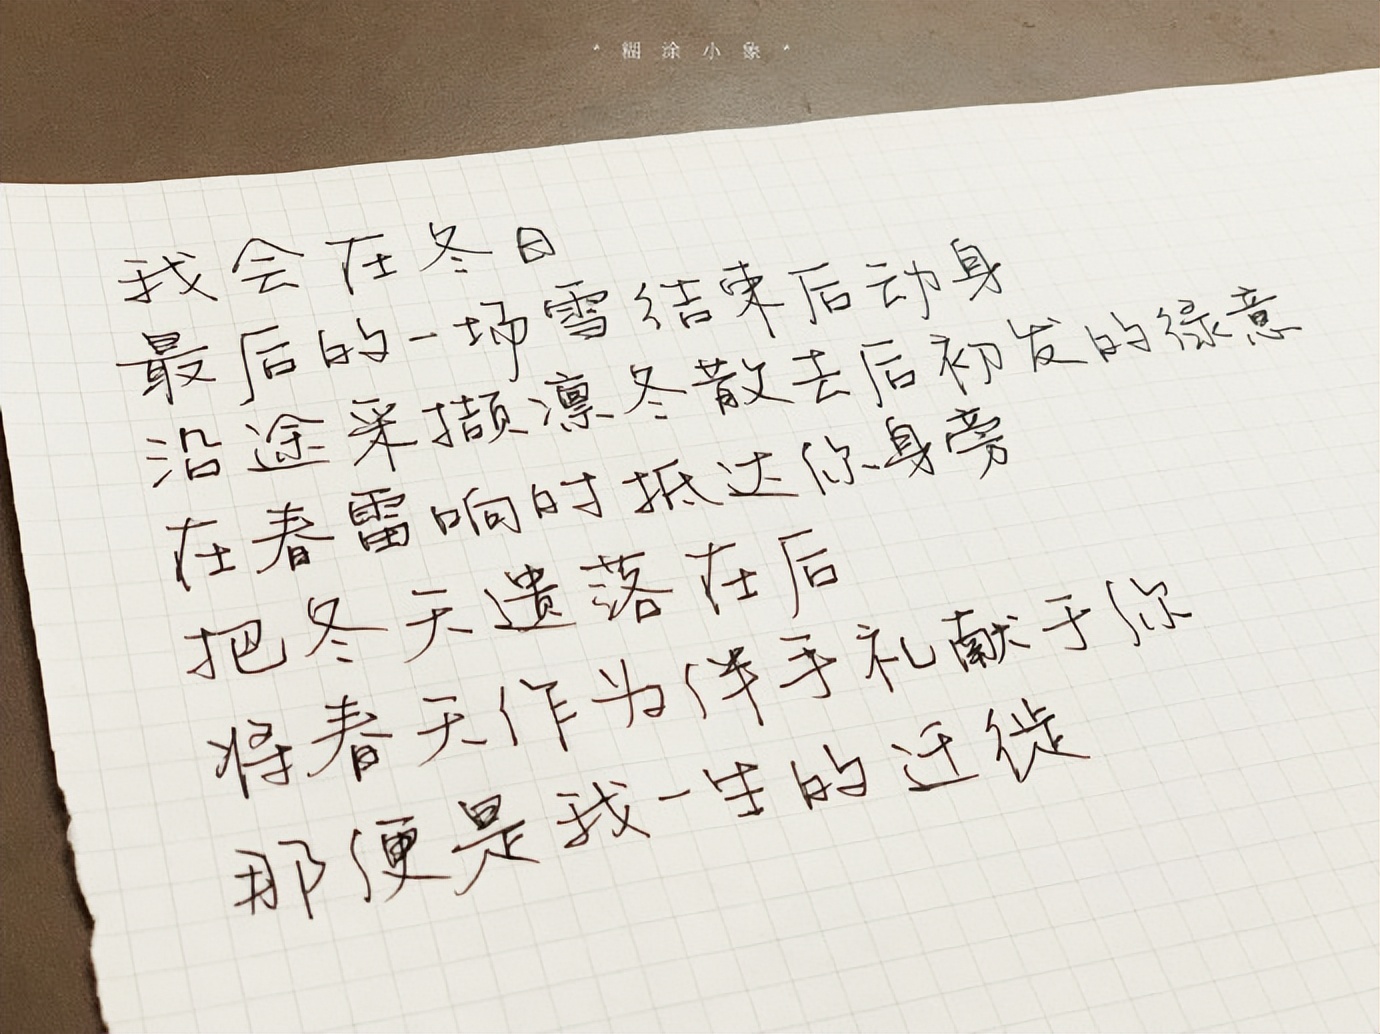 糊涂小象
我会在冬日
最后的一场雪结束后动身
沿途采撷凛冬散去后初发的绿意
在春雷响时抵达你身旁
把冬天遗落在后
将春天作为伴手礼献于你
那便是我一生的迁徙